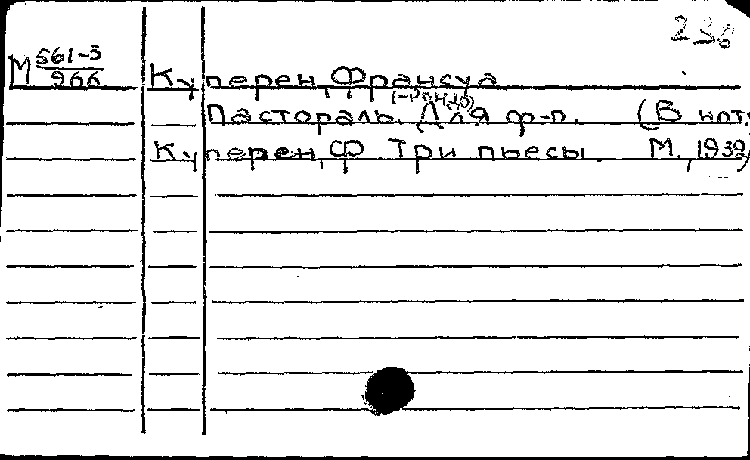 236
М 561-3/966 Куперен, Франсуа
(-Рондо)
Пастораль. Для ф-п. (В нот.
Куперен, Ф. Три пьесы. М., 1932)